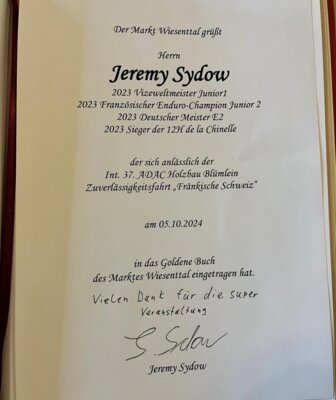 Der Markt Wiesenttal grüßt
Herrn
Jeremy Sydow
2023 Vizeweltmeister Junior1
2023 Französischer Enduro-Champion Junior 2
2023 Deutscher Meister E2
2023 Sieger der 12H de la Chinelle
der sich anlässlich der
Int. 37. ADAC Holzbau Blümlein
Zuverlässigkeitsfahrt „Fränkische Schweiz“
am 05.10.2024
in das Goldene Buch
des Marktes Wiesenttal eingetragen hat.
Vielen Dank für die super
Veranstaltung
J. Sydow
Jeremy Sydow